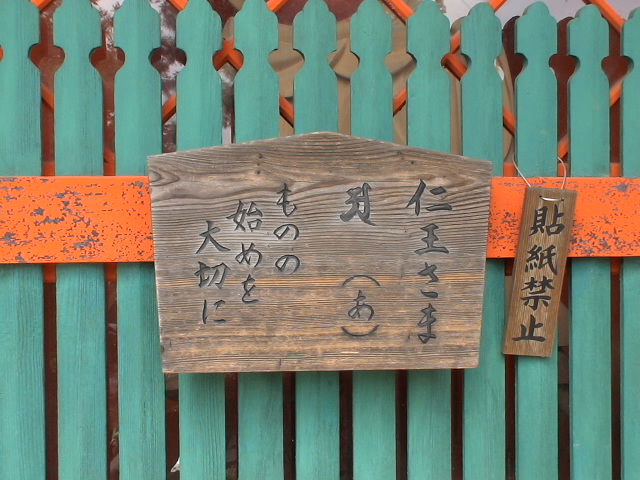 仁王さま
𑖀 （あ）
ものの
始めを
大切に
貼紙禁止